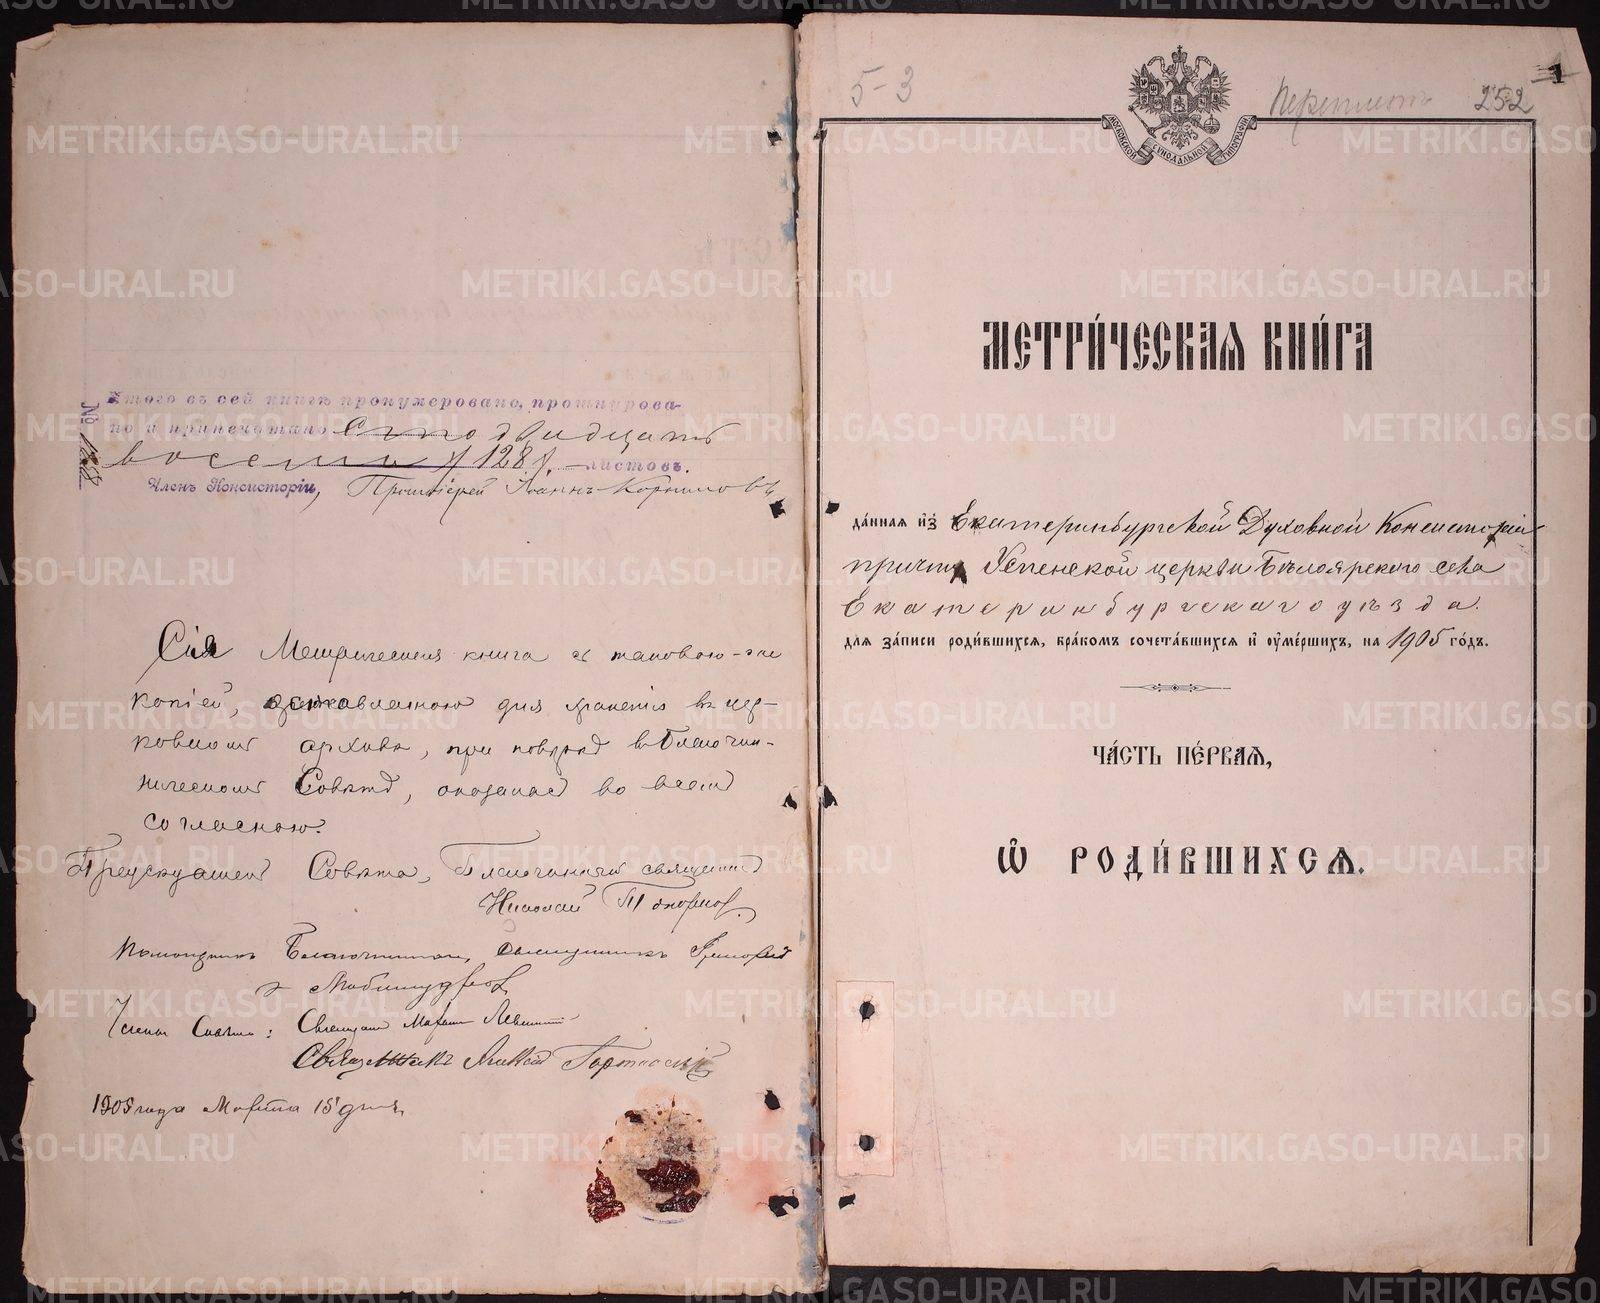 Итого въ сей книгѣ пронумеровано, прошнурова-
но и припечатано сто двадцать
восемь /128/. листовъ.
Членъ Консисторіи, Протоіерей Іоаннъ Корниловъ
№
Сія Метрическая книга съ таковою-же
копіей, оставленною для храненія въ цер-
ковномъ архивѣ, при повѣркѣ въ Благочин-
ническомъ Совѣтѣ, оказалась во всемъ
согласною.
Предсѣдатель Совѣта, Благочинный священникъ
Николай
Помощникъ Благочиннаго, священникъ Григорій
Члены Совѣта: Священникъ
Священникъ
1905 года Марта 15 дня
5-3
Переплетъ 252
1
МОСКОВСКОЙ СѴНОДАЛЬНОЙ ТИПОГРАФІИ
МЕТРИ́ЧЕСКАѦ КНИ́ГА
да́нная из̾ Екатеринбургской Духовной Консисторіи
причту Успенской церкви Бѣлоярскаго села
Екатеринбургскаго уѣзда.
для за́писи роди́вшихся, бра́комъ сочета́вшихся и оуме́ршихъ, на 1905 го́дъ.
ЧА́СТЬ ПЕ́РВАѦ,
Ѡ РОДИ́ВШИХСѦ.
METRIKI.GASO-URAL.RU